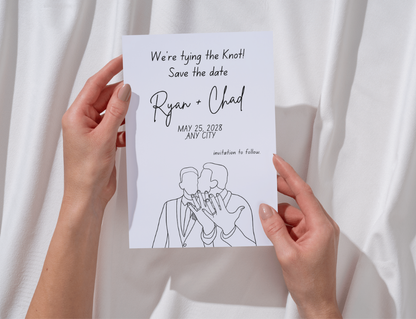 We're tying the Knot!
Save the date
Ryan + Chad
MAY 25, 2028
ANY CITY
invitation to follow